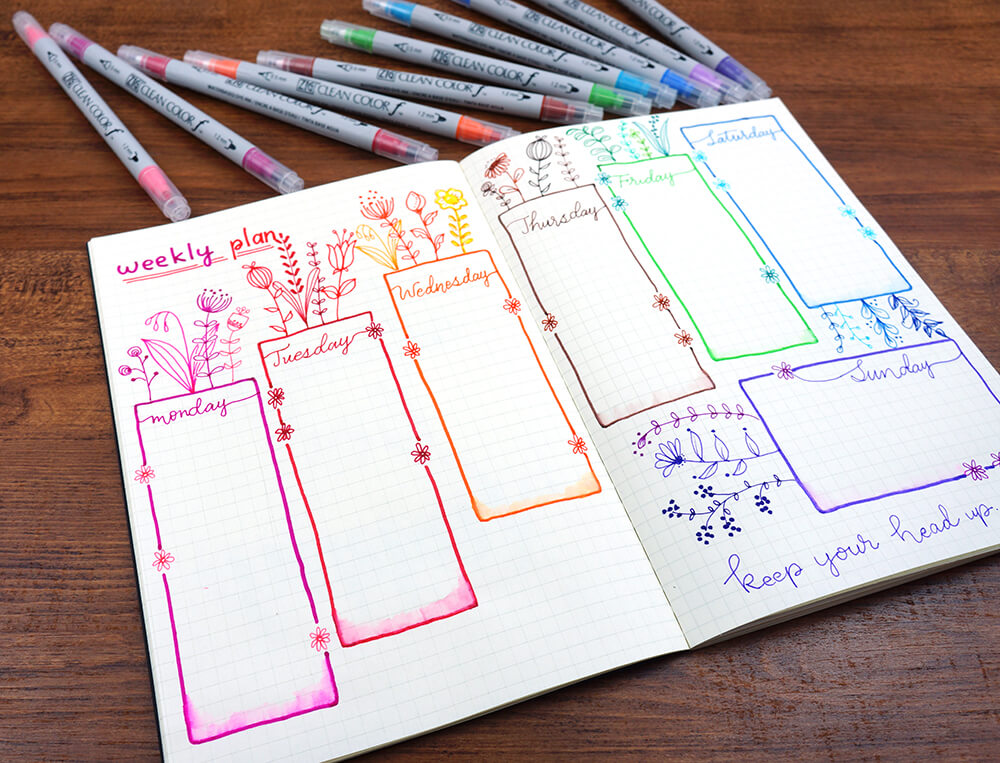 ZIG CLEAN COLOR f
ZIG CLEAN COLOR f
ZIG CLEAN COLOR f
ZIG CLEAN COLOR f
ZIG CLEAN COLOR f
ZIG CLEAN COLOR f
ZIG CLEAN COLOR f
weekly plan
monday
Tuesday
Wednesday
Thursday
Friday
Saturday
Sunday
keep your head up.